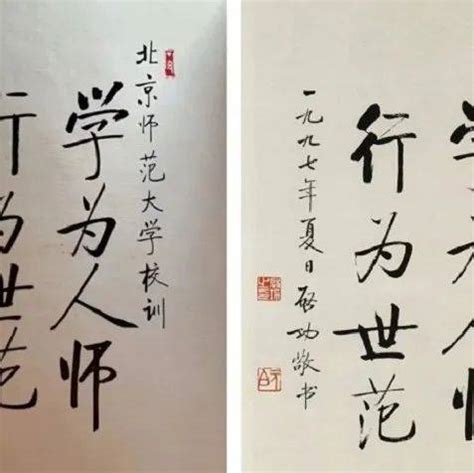 北京师范大学校训
学为人师
行为世范
学为人师
行为世范
一九九七年夏日启功敬书